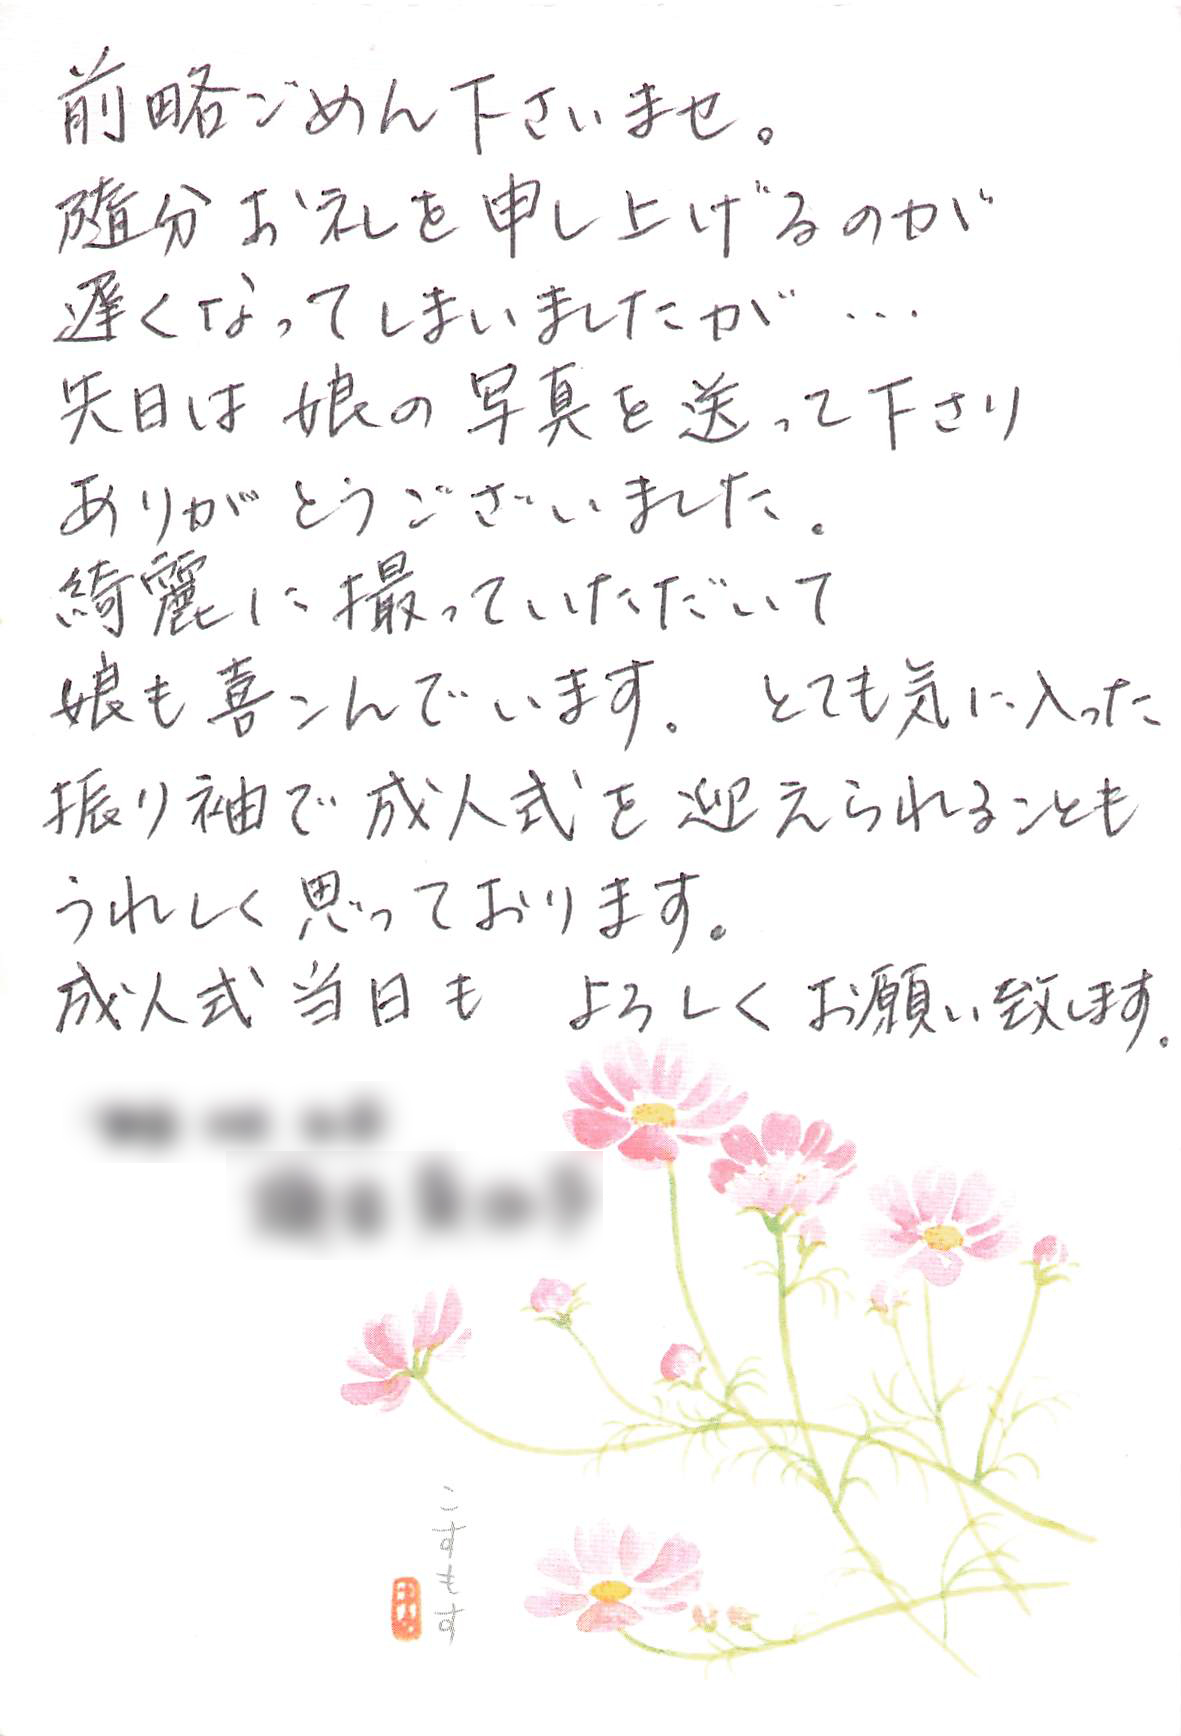 前略ごめん下さいませ。
随分お礼を申し上げるのが
遅くなってしまいましたが…
先日は娘の写真を送って下さり
ありがとうございました。
綺麗に撮っていただいて
娘も喜こんでいます。 とても気に入った
振り袖で成人式を迎えられることも
うれしく思っております。
成人式当日も よろしくお願い致します。
こすもす